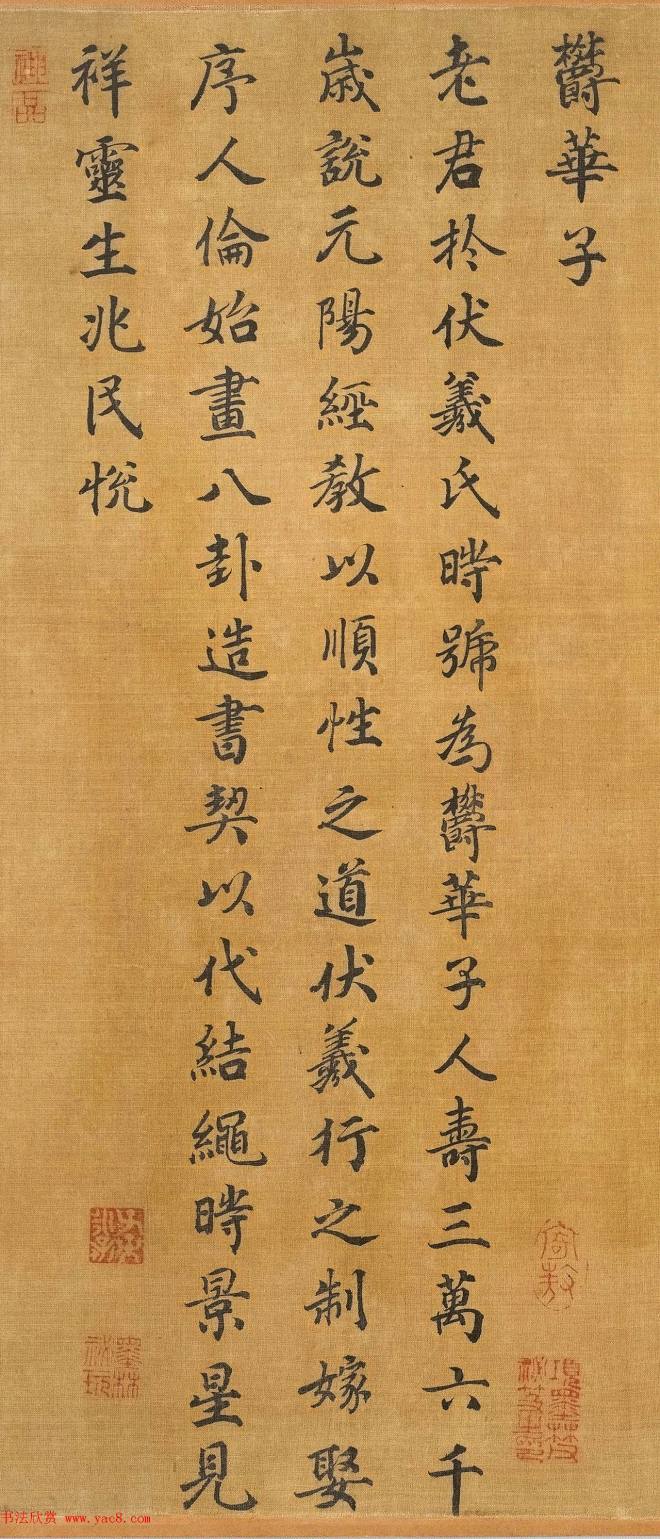 欝華子
老君於伏羲氏時號為欝華子人壽三萬六千
歲說元陽經教以順性之道伏羲行之制嫁娶
序人倫始畫八卦造書契以代結繩時景星見
祥靈生兆民悅
墨林祕玩
書法欣赏 www.yac8.com